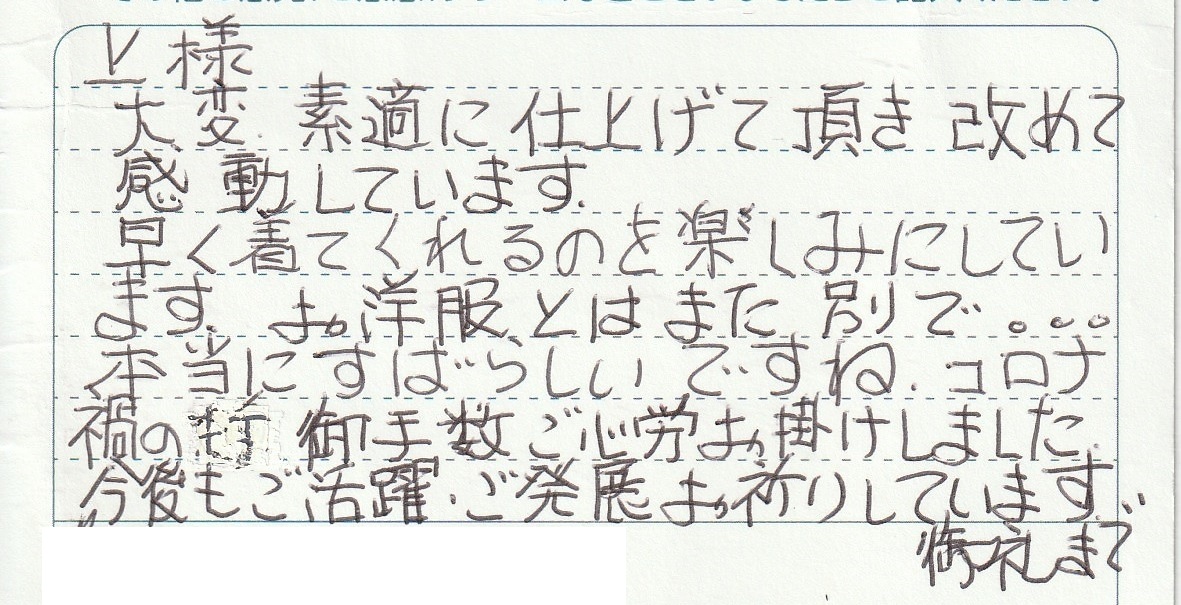 上様
大変 素適に 仕上げて 頂き 改めて
感動しています.
早く着てくれるのを楽しみにしてい
ます. お洋服とはまた 別で...
本当に すばらしい ですね. コロナ
禍の折 御手数ご心労お掛けしました.
今後もご活躍.ご発展お祈りしています..
御礼まで